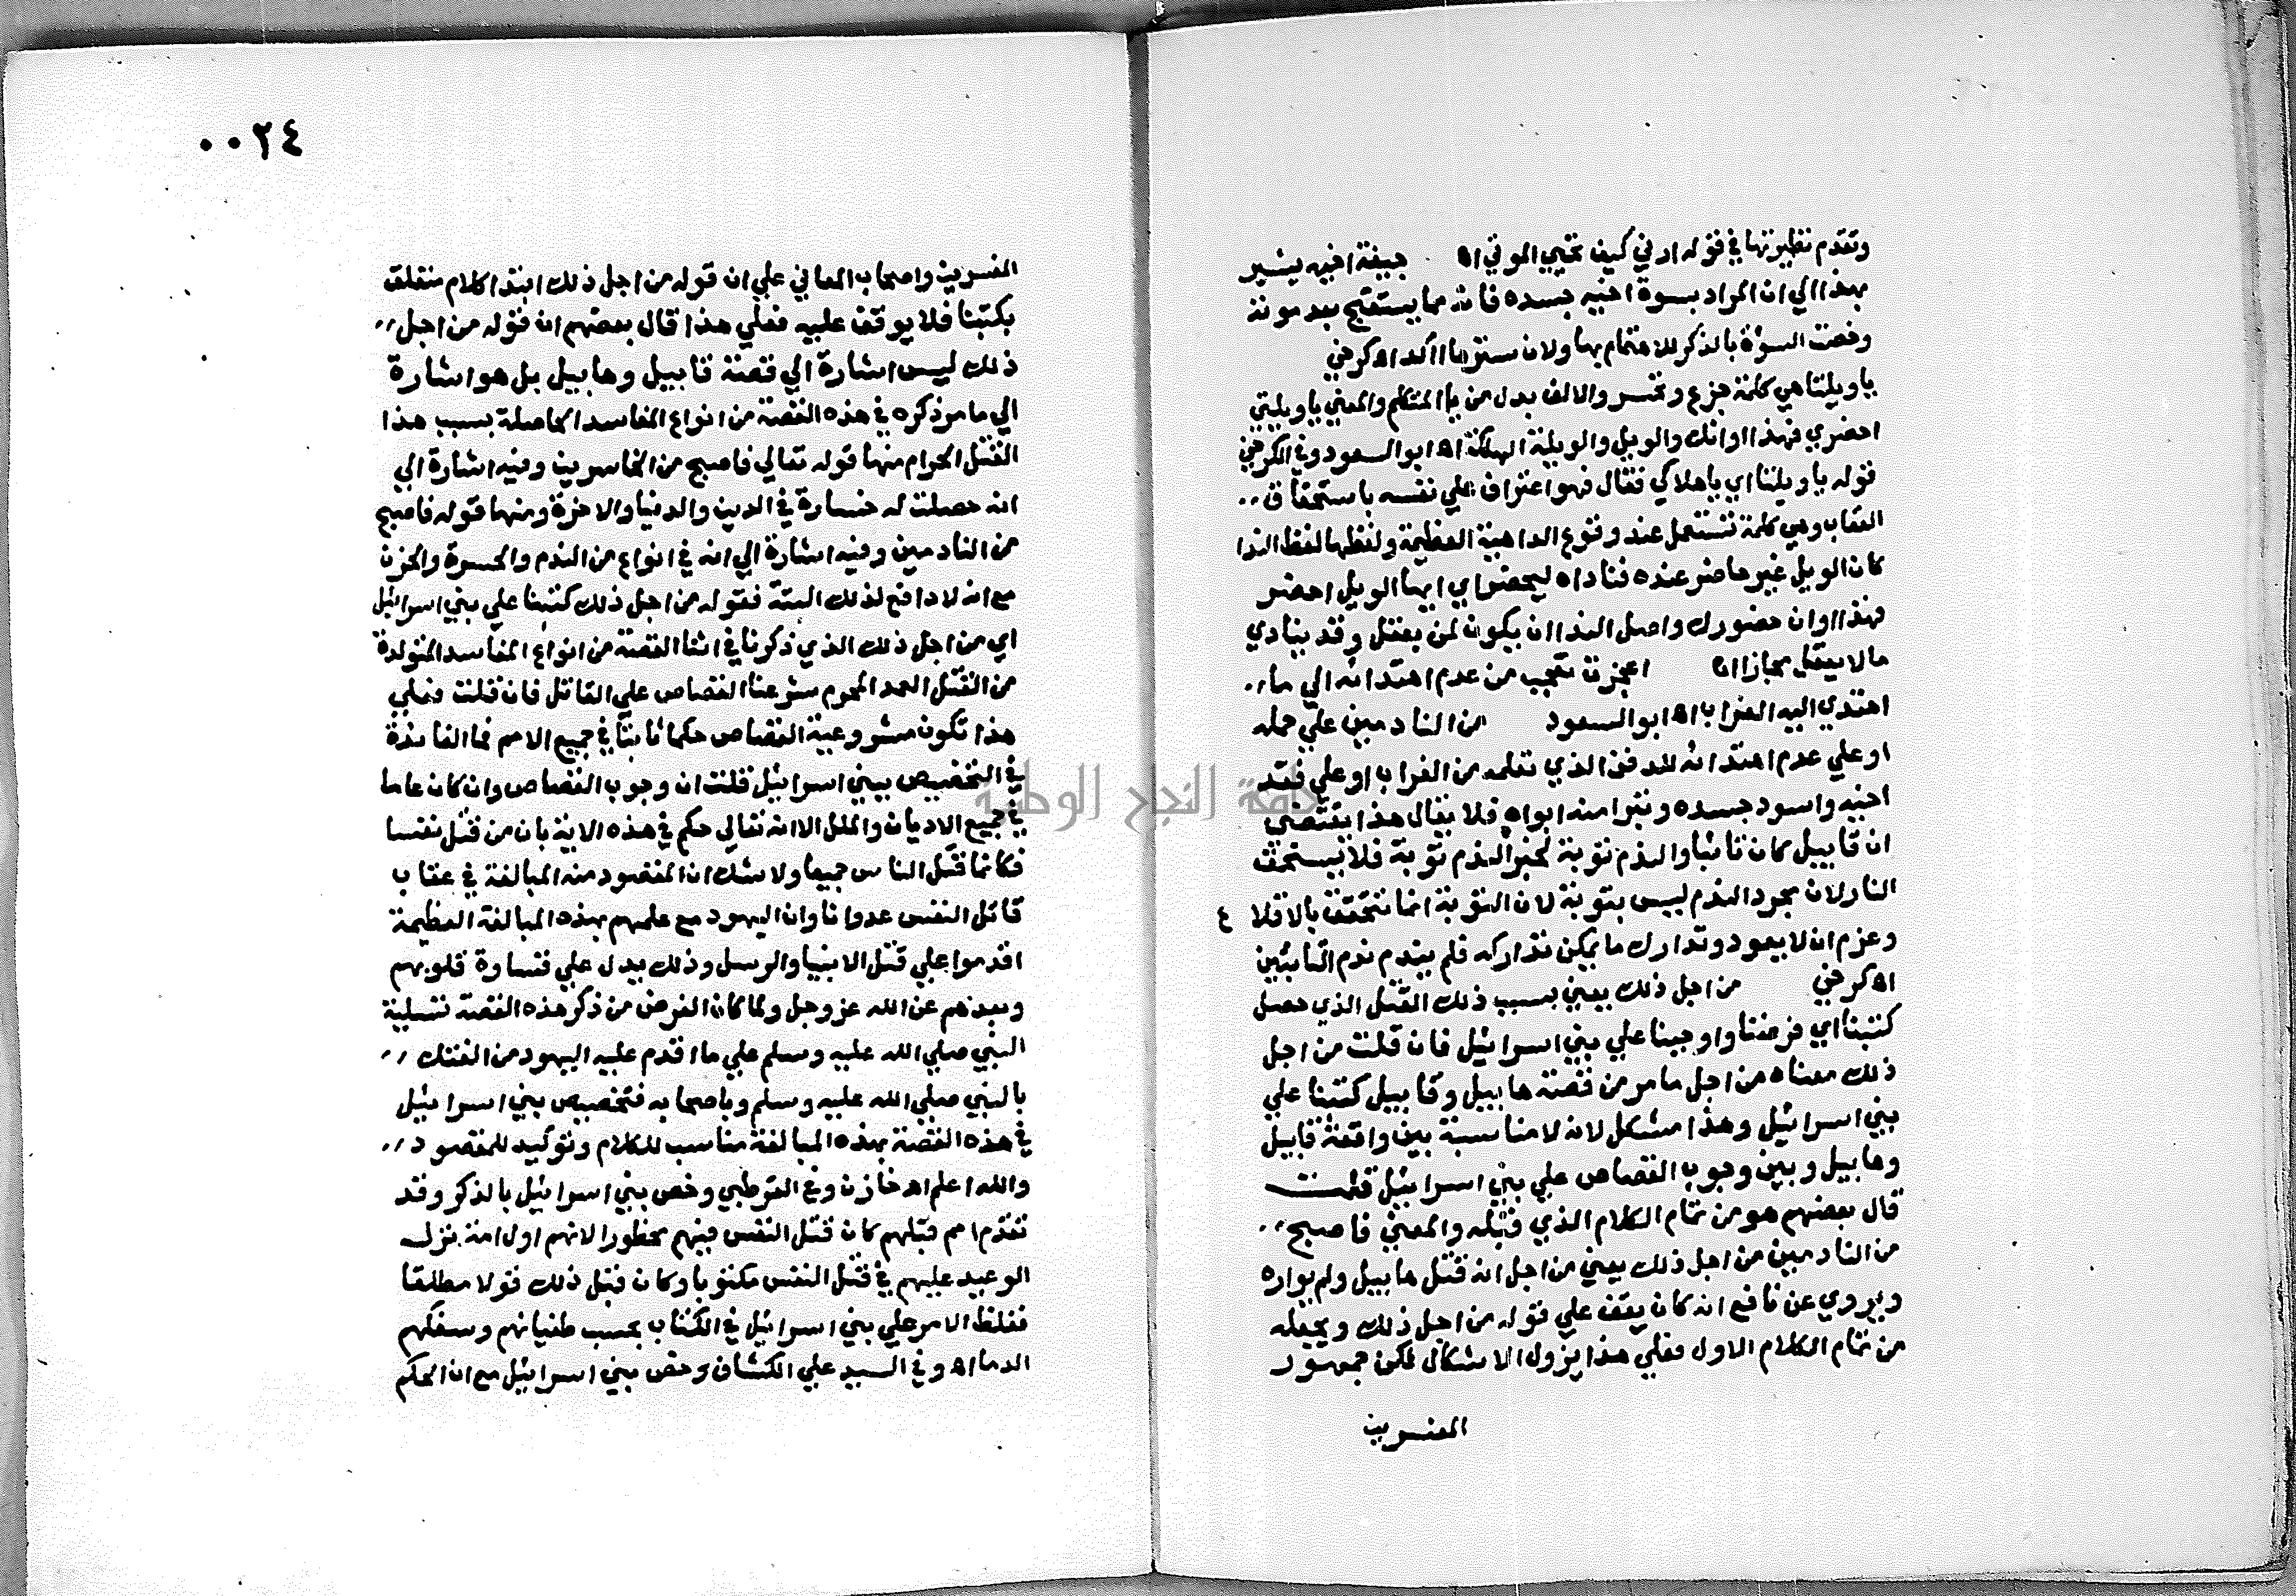 وتقدم نظيرتها في قوله ارني كيف تحيي الموتي اه جيفة اخيه يشير
بهذا الي ان المراد بسوة اخيه جسده فانه مما يستقبح بعد موته
وخصت السوة بالذكر للاهتمام بها ولان سترها اكد اه كرخي
يا ويلتا هي كلمة جزع وتحسر والالف بدل من يا المتكلم والمعني يا ويلتي
احضري فهذا اوانك والويل والويلة الهلكة اه ابو السعود وفي الكرخي
قوله يا ويلتا اي يا هلاكي فقال فهو اعتراف علي نفسه باستحقاق
العقاب وهي كلمة تستعمل عند وقوع الداهية العظيمة ولفظها لفظ الندا
كان الويل غير حاضر عنده فناداه ليحضر اي ايها الويل احضر
فهذا اوان حضورك واصل الندا ان يكون لمن يعقل وقد ينادي
ما لا يعقل مجازا اه اعجزت تعجب من عدم اهتدائه الي ما
اهتدي اليه الغراب اه ابو السعود من النادمين علي حمله
او علي عدم اهتدائه للدفن الذي تعلمه من الغراب او علي فقد
اخيه واسود جسده وتبرا منه ابواه فلا يقال هذا يقتضي
ان قابيل كان تائبا والندم توبة لخبر الندم توبة فلا يستحق
النار لان مجرد الندم ليس بتوبة لان التوبة انما تتحقق بالاقلاع
وعزم ان لا يعود وتدارك ما يمكن تداركه فلم يندم ندم التائبين
اه كرخي من اجل ذلك يعني بسبب ذلك القتل الذي حصل
كتبنا اي فرضنا واوجبنا علي بني اسرائيل فان قلت من اجل
ذلك معناه من اجل ما مر من قصة هابيل وقابيل كتبنا علي
بني اسرائيل وهذا مشكل لانه لا مناسبة بين واقعة قابيل
وهابيل وبين وجوب القصاص علي بني اسرائيل قلت
قال بعضهم هو من تمام الكلام الذي قبله والمعني فاصبح
من النادمين من اجل ذلك يعني من اجل انه قتل هابيل ولم يواره
ويروي عن نافع انه كان يقف علي قوله من اجل ذلك ويجعله
من تمام الكلام الاول فعلي هذا يزول الاشكال لكن جمهور
المفسرين
٠٠٢٤
المفسرين واصحاب المعاني علي ان قوله من اجل ذلك ابتدا كلام متعلق
بكتبنا فلا يوقف عليه فعلي هذا قال بعضهم ان قوله من اجل
ذلك ليس اشارة الي قصة قابيل وهابيل بل هو اشارة
الي ما مر ذكره في هذه القصة من انواع المفاسد الحاصلة بسبب هذا
القتل الحرام منها قوله تعالي فاصبح من الخاسرين وفيه اشارة الي
انه حصلت له خسارة في الدين والدنيا والاخرة ومنها قوله فاصبح
من النادمين وفيه اشارة الي انه في انواع من الندم والحسرة والحزن
مع انه لا دافع لذلك البتة فقوله من اجل ذلك كتبنا علي بني اسرائيل
اي من اجل ذلك الذي ذكرنا في اثنا القصة من انواع المفاسد المتولدة
من القتل العمد المحرم شرعنا القصاص علي القاتل فان قلت فعلي
هذا تكون مشروعية القصاص حكما ثابتا في جميع الامم فما الفائدة
في التخصيص ببني اسرائيل قلت ان وجوب القصاص وان كان عاما
في جميع الاديان والملل الا انه تعالي حكم في هذه الاية بان من قتل نفسا
فكانما قتل الناس جميعا ولا شك ان المقصود منه المبالغة في عقاب
قاتل النفس عدوانا وان اليهود مع علمهم بهذه المبالغة العظيمة
اقدموا علي قتل الانبيا والرسل وذلك يدل علي قساوة قلوبهم
وبعدهم عن الله عز وجل ولما كان الغرض من ذكر هذه القصة تسلية
النبي صلي الله عليه وسلم علي ما اقدم عليه اليهود من الفتك
بالنبي صلي الله عليه وسلم وباصحابه فتخصيص بني اسرائيل
في هذه القصة بهذه المبالغة مناسب للكلام وتوكيد للمقصود
والله اعلم اه خازن وفي القرطبي وخص بني اسرائيل بالذكر وقد
تقدم امم قبلهم كان قتل النفس فيهم محظورا لانهم اول امة نزل
الوعيد عليهم في قتل النفس مكتوبا وكان قبل ذلك قولا مطلقا
فغلظ الامر علي بني اسرائيل في الكتاب بحسب طغيانهم وسفكهم
الدما اه وفي السيد علي الكشاف وخص بني اسرائيل مع ان الحكم
جامعة النجاح الوطنية